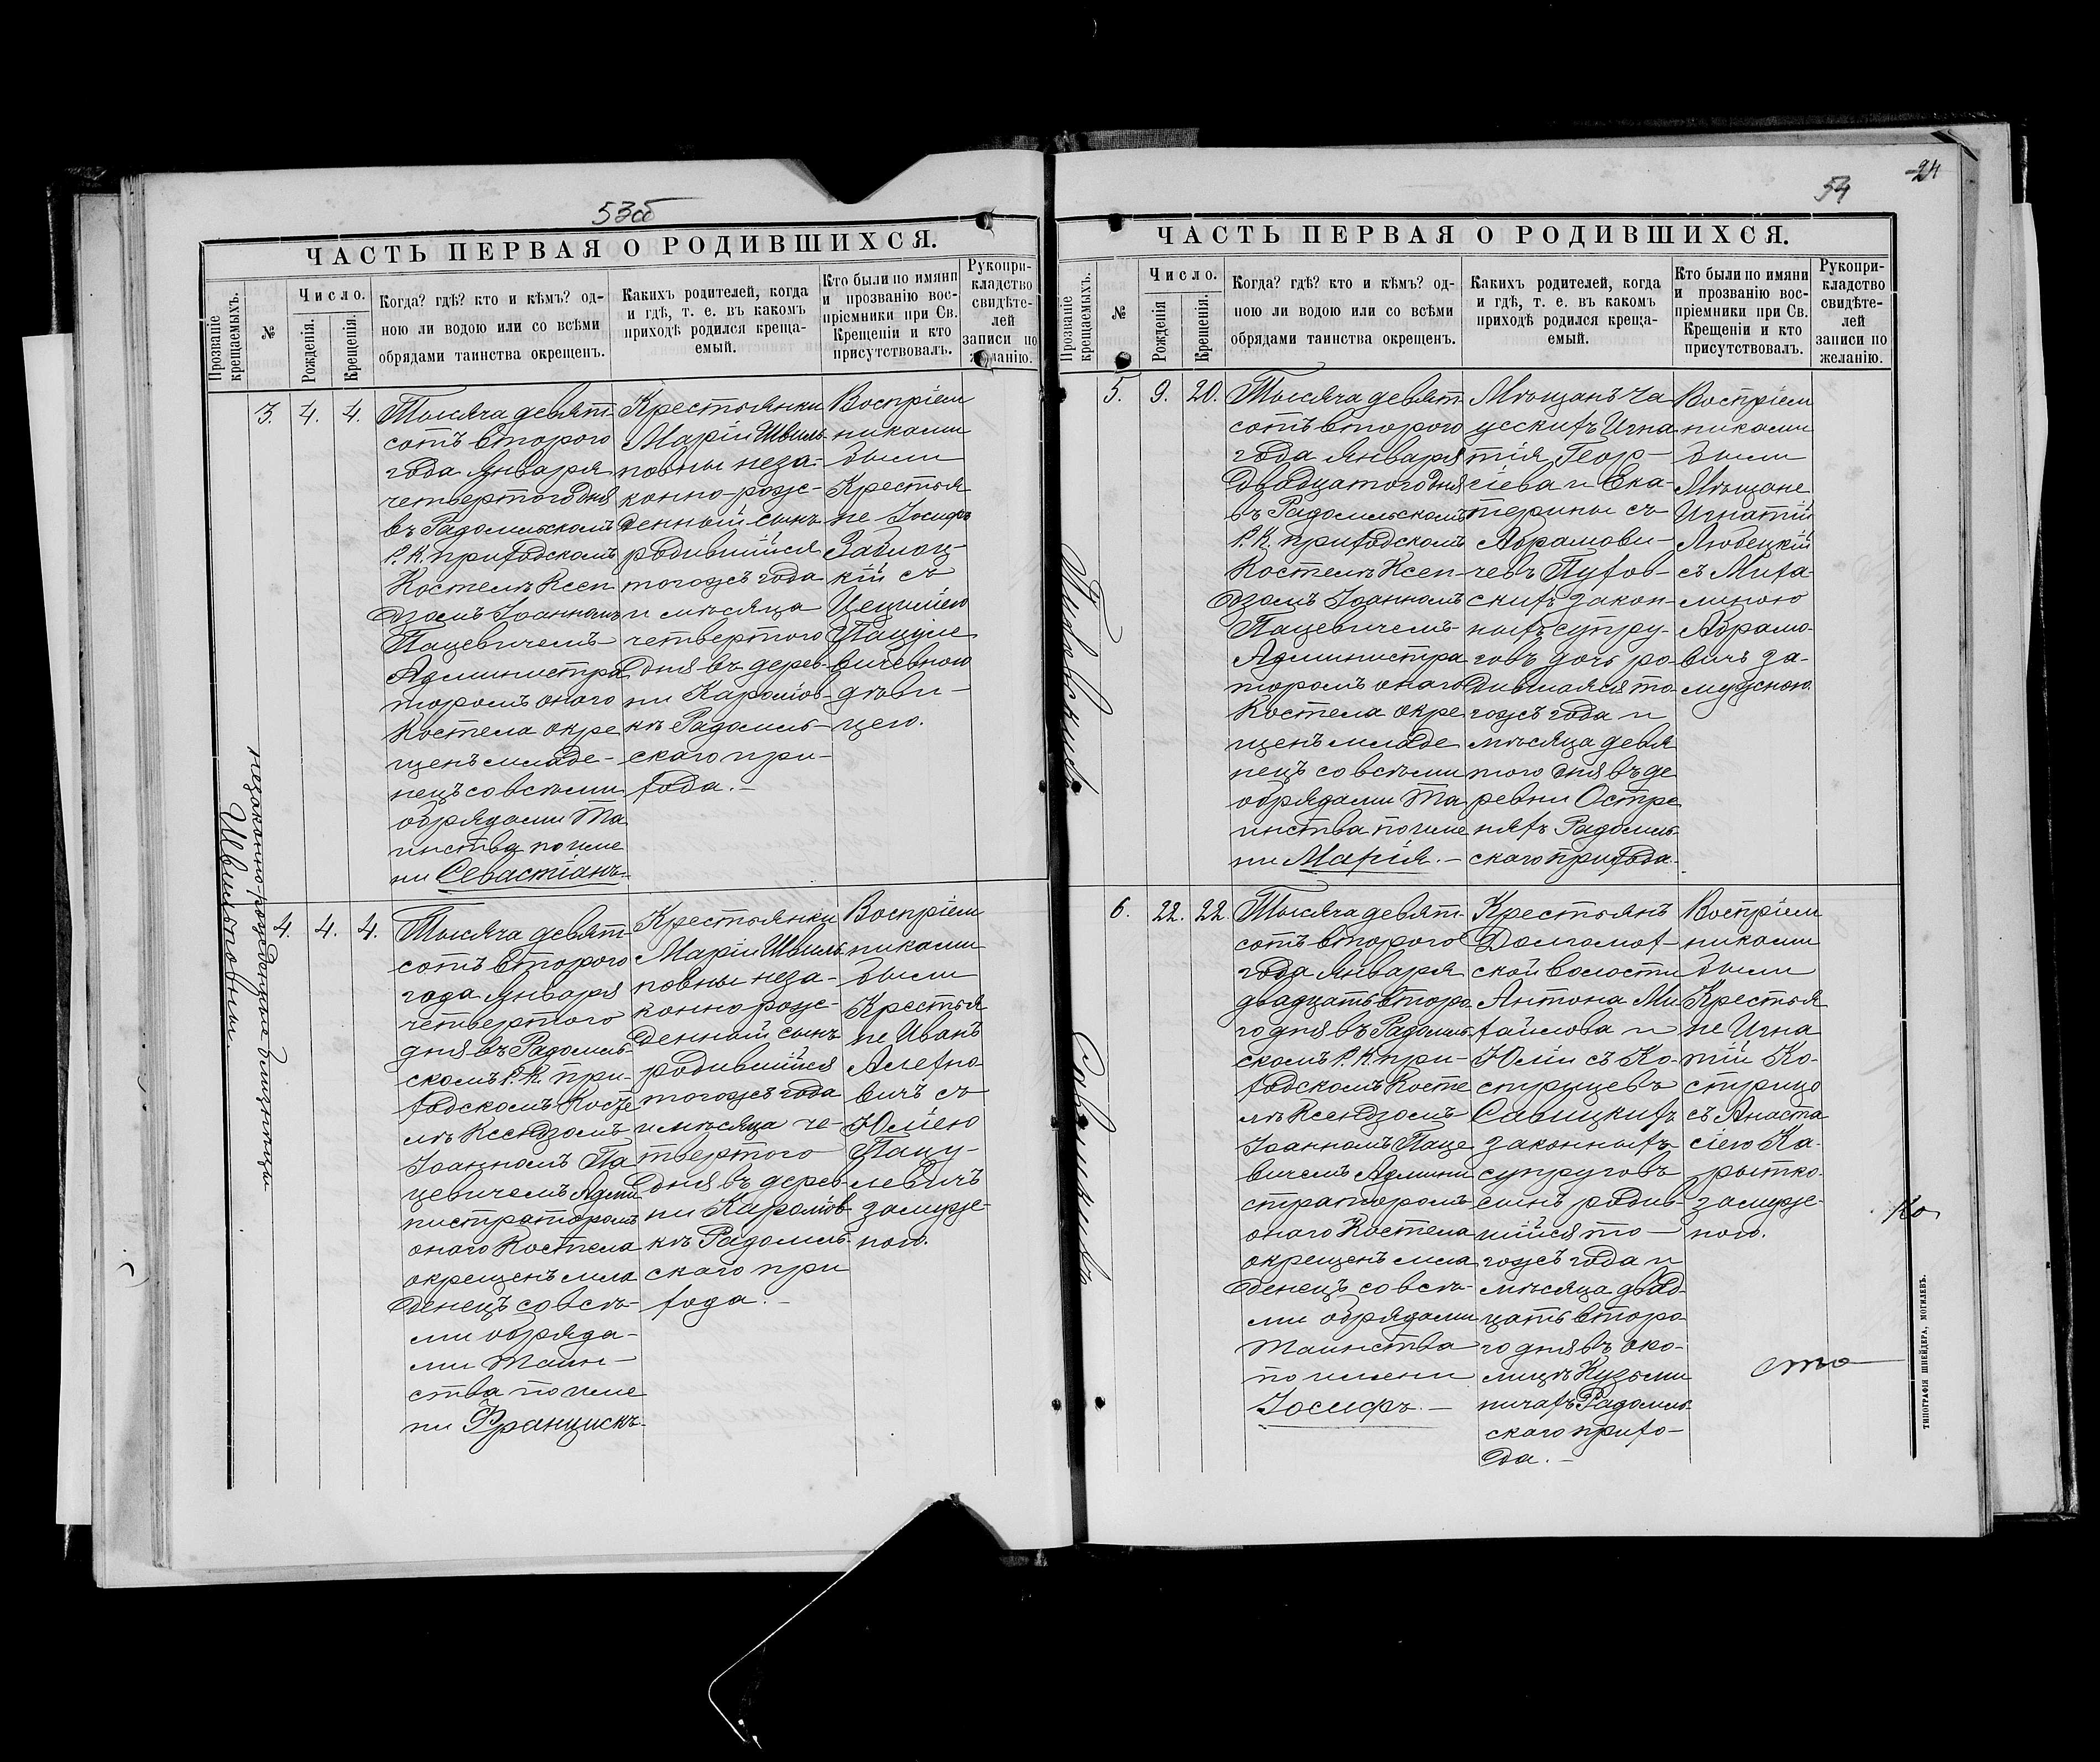 53об
ЧАСТЬ ПЕРВАЯ О РОДИВШИХСЯ.
Прозваніе крещаемыхъ.
№
Число.
Рожденія.
Крещенія.
Когда? гдѣ? кто и кѣмъ? од-
ною ли водою или со всѣми
обрядами таинства окрещенъ.
Какихъ родителей, когда
и гдѣ, т. е. въ какомъ
приходѣ родился креща-
емый.
Кто были по имяни
и прозванію вос-
пріемники при Св.
Крещеніи и кто
присутствовалъ.
Рукопри-
кладство
свидѣте-
лей
записи по
желанію.
незаконно-рожденные близнецы
Швильповны
3.
4.
4.
Тысяча девят-
сотъ второго
года Января
четвертого дня
въ Радомльскомъ
Р. К. приходскомъ
Костелѣ Ксен
дзомъ Іоанномъ
Пацевичемъ
Администра
торомъ онаго
Костела окре
щенъ младе-
нецъ со всѣми
обрядами Та
инства по име
ни Севастіанъ.
Крестьянки
Маріи Швиль
повны неза-
конно-рож-
денный сынъ
родившійся
тогожъ года
и мѣсяца
четвертого
дня въ дерев-
ни Каролiов-
кѣ Радомль-
скаго при-
хода.
Воспріем
никами
были
Крестья
не Іосифъ
Заблоц-
кій съ
Цециліею
Пацуле
вичевною
дѣви-
цею.
4.
4.
4.
Тысяча девят-
сотъ второго
года Января
четвертого
дня въ Радомль-
скомъ Р. К. при-
ходскомъ Косте
лѣ Ксендзомъ
Іоанномъ Па
цевичемъ Адми
нистраторомъ
онаго Костела
окрещенъ мла
денецъ со всѣ-
ми обряда-
ми Таин-
ства по име
ни Францискъ.
Крестьянки
Маріи Швиль-
повны неза-
конно рож-
денный сынъ
родившійся
тогожъ года
и мѣсяца че-
твертого
дня въ дерев-
ни Каролiов
кѣ Радомль-
скаго при
хода.
Воспріем
никами
были
Крестья
не Иванъ
Алехно-
вичъ съ
Юліею
Пацу-
левичъ
замуже-
ною.
54
24
ЧАСТЬ ПЕРВАЯ О РОДИВШИХСЯ.
Прозваніе крещаемыхъ.
№
Число.
Рожденія
Крещенія.
Когда? гдѣ? кто и кѣмъ? од-
ною ли водою или со всѣми
обрядами таинства окрещенъ.
Какихъ родителей, когда
и гдѣ, т. е. въ какомъ
приходѣ родился креща-
емый.
Кто были по имяни
и прозванію вос-
пріемники при Св.
Крещеніи и кто
присутствовалъ.
Рукопри-
кладство
свидѣте-
лей
записи по
желанію.
5.
9.
20.
Тысяча девят-
сотъ второго
года Января
двадцатого дня
въ Радомльскомъ
Р. К. приходскомъ
Костелѣ Ксен
дзомъ Іоанномъ
Пацевичемъ
Администра
торомъ онаго
Костела окре
щенъ младе
нецъ со всѣми
обрядами Та
инства по име
ни Марія.
Мѣщанъ Ча
усскихъ Игна
тія Геор-
гіева и Ека-
терины съ
Абрамови-
чевъ Пухов-
скихъ закон-
ныхъ супру-
говъ дочь ро-
дившаяся то
гожъ года и
мѣсяца девя
того дня въ де
ревни Остре
няхъ Радомль-
скаго прихода.
Воспріем
никами
были
Мѣщане
Игнатій
Любецкій
съ Миха-
линою
Абрамо-
вичъ за-
мужною.
6.
22.
22.
Тысяча девят-
сотъ второго
года Января
двадцать второ
го дня въ Радомль-
скомъ Р. К. при-
ходскомъ Косте
лѣ Ксендзомъ
Іоанномъ Паце
вичемъ Админи
страторомъ
онаго Костела
окрещенъ мла
денецъ со всѣ-
ми обрядами
Таинства
по имени
Іосифъ.
Крестьянъ
Долгомох-
ской волости
Антона Ми
хайлова и
Юліи съ Ко-
струцевъ
Савицкихъ
законныхъ
супруговъ
сынъ родив-
шійся то-
гожъ года и
мѣсяца двад-
цать второ
го дня въ око-
лицѣ Кузьми
ничахъ Радомль-
скаго прихо-
да.
Воспріем
никами
были
Крестья
не Игна
тій Ко-
стрицо
съ Анаста
сіею Ка-
рытко
замуже-
ною.
сто
ТИПОГРАФІЯ ШНЕЙДЕРА, МОГИЛЕВЪ.